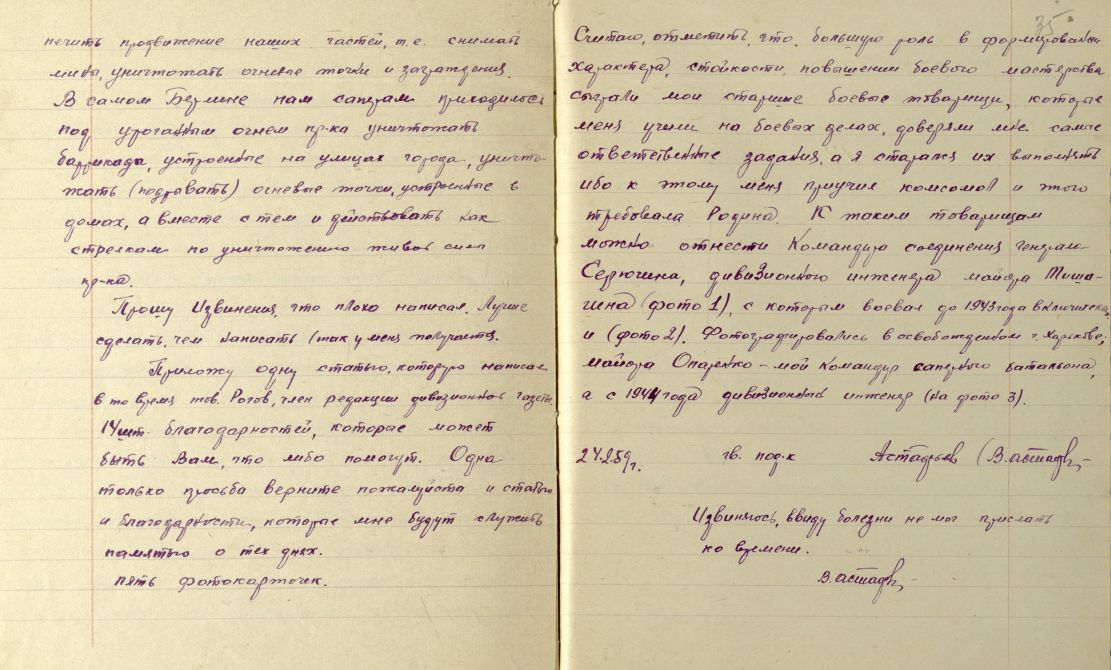 печить продвижение наших частей, т.е. снимать
мины, уничтожать огневые точки и заграждения.
В самом Берлине нам саперам приходилось
под ураганным огнем пр-ка уничтожать
баррикады, устроенные на улицах города, уничто-
жать (подрывать) огневые точки, устроенные в
домах, а вместе с тем и действовать как
стрелкам по уничтожению живой силы
пр-ка.
Прошу Извинения, что плохо написал. Лучше
сделать, чем написать (так у меня получается.
Приложу одну статью, которую написал
в то время тов. Рогов, член редакции дивизионной газеты
14 шт. благодарностей, которые может
быть Вам, что либо помогут. Одна
только просьба верните пожалуйста и статью
и благодарности, которые мне будут служить
памятью о тех днях.
пять фотокарточек.
35
Считаю, отметить, что большую роль в формировании
характера, стойкости, повышении боевого мастерства
сыграли мои старшие боевые товарищи, которые
меня учили на боевых делах, доверяли мне самые
ответственные задания, а я старался их выполнять
ибо к этому меня приучил комсомол и этого
требовала Родина. К таким товарищам
можно отнести Командира соединения генерала
Серюгина, дивизионного инженера майора Тиша-
гина (фото 1), с которым воевал до 1943 года включительно,
и (фото 2). Фотографировались в освобожденном г. Харькове;
майора Опаренко – мой командир саперного батальона,
а с 1944 года дивизионный инженер (на фото 3).
24 2 59 г. гв. под-к Астафьев (В.Астафь
Извиняюсь, ввиду болезни не мог прислать
ко времени.
В.Астафь